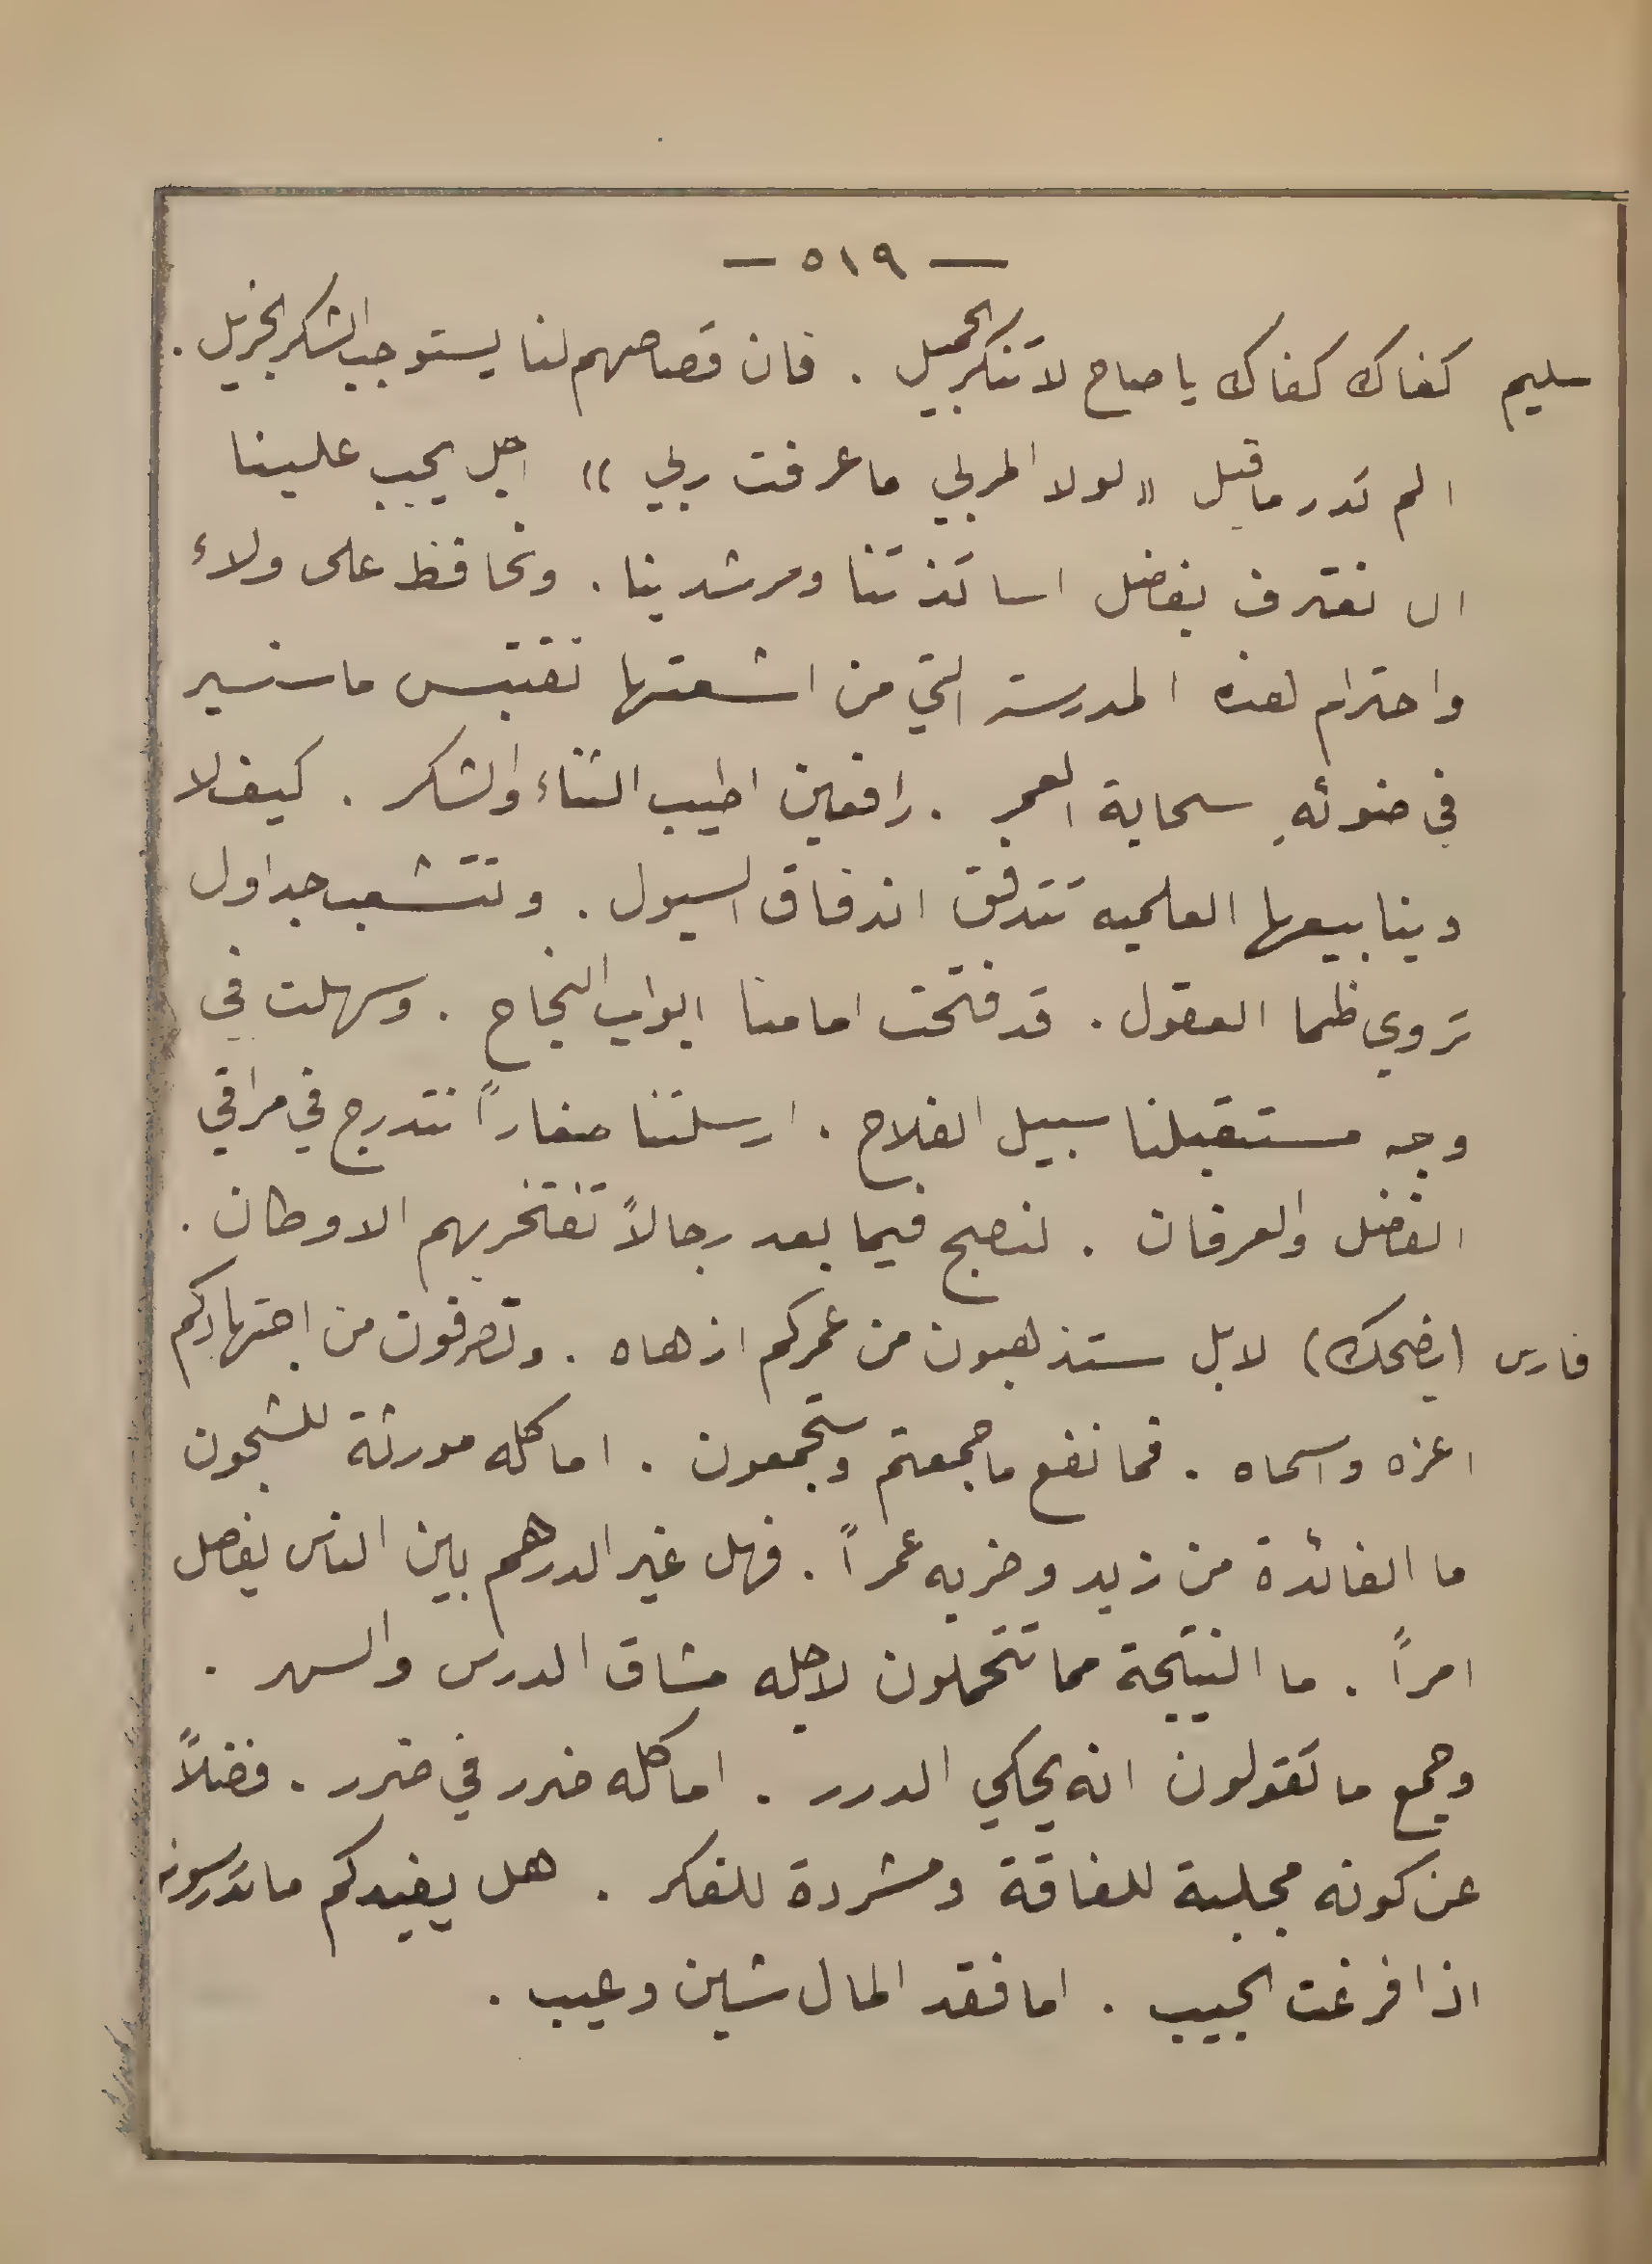 — ٥١٩ —
سليم كفاك كفاك يا صاح لا تنكر الجميل . فان قصاصهم لنا يستوجب الشكر الجزيل .
الم تدر ما قيل « لولا المربي ما عرفت ربي » اجل يجب علينا
ان نعترف بفضل اساتذتنا ومرشدينا . ونحافظ على ولاء
واحترام لهذه المدرسة التي من اشعتها نقتبس ما سنسير
في ضوئهِ سحابة العمر . رافعين اطيب الثناء والشكر . كيف لا
وينابيعها العلميه تتدفق اندفاق السيول . وتتشعب جداول
تروي ظما العقول . قد فتحت امامنا ابواب النجاح . وسهلت في
وجه مستقبلنا سبيل الفلاح . ارسلتنا صغاراً نتدرج في مراقي
الفضل والعرفان . لنصبح فيما بعد رجالاً تفتخر بهم الاوطان .
فارس (يضحك) لا بل ستذهبون من عمركم ازهاه . وتصرفون من اجتهادكم
اعزه واسماه . فما نفع ما جمعتم وستجمعون . اما كله مورثة للشجون
ما الفائدة من زيد وضربه عمراً . فهل غير الدرهم بين الناس يفصل
امراً . ما النتيجة مما تتحملون لاجله مشاق الدرس والسهر .
وجمع ما تقولون انه يحكي الدرر . اما كله ضرر في ضرر . فضلاً
عن كونه مجلبة للفاقة ومشردة للفكر . هل يفيدكم ما تدرسونه
اذا فرغت الجيب . اما فقد المال شين وعيب .